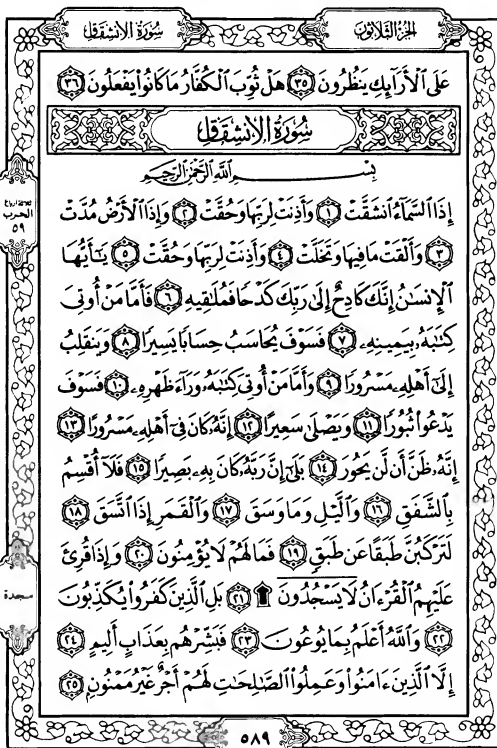 الجزء الثلاثون
سُورَةُ الانشقاق
عَلَى ٱلْأَرَآئِكِ يَنظُرُونَ ٣٥ هَلْ ثُوِّبَ ٱلْكُفَّارُ مَا كَانُوا۟ يَفْعَلُونَ ٣٦
سُورَةُ الانشقاق
بِسْمِ ٱللَّهِ ٱلرَّحْمَٰنِ ٱلرَّحِيمِ
إِذَا ٱلسَّمَآءُ ٱنشَقَّتْ ١ وَأَذِنَتْ لِرَبِّهَا وَحُقَّتْ ٢ وَإِذَا ٱلْأَرْضُ مُدَّتْ
٣ وَأَلْقَتْ مَا فِيهَا وَتَخَلَّتْ ٤ وَأَذِنَتْ لِرَبِّهَا وَحُقَّتْ ٥ يَٰٓأَيُّهَا
ٱلْإِنسَٰنُ إِنَّكَ كَادِحٌ إِلَىٰ رَبِّكَ كَدْحًا فَمُلَٰقِيهِ ٦ فَأَمَّا مَنْ أُوتِىَ
كِتَٰبَهُۥ بِيَمِينِهِۦ ٧ فَسَوْفَ يُحَاسَبُ حِسَابًا يَسِيرًا ٨ وَيَنقَلِبُ
إِلَىٰٓ أَهْلِهِۦ مَسْرُورًا ٩ وَأَمَّا مَنْ أُوتِىَ كِتَٰبَهُۥ وَرَآءَ ظَهْرِهِۦ ١٠ فَسَوْفَ
يَدْعُوا۟ ثُبُورًا ١١ وَيَصْلَىٰ سَعِيرًا ١٢ إِنَّهُۥ كَانَ فِىٓ أَهْلِهِۦ مَسْرُورًا ١٣
إِنَّهُۥ ظَنَّ أَن لَّن يَحُورَ ١٤ بَلَىٰٓ إِنَّ رَبَّهُۥ كَانَ بِهِۦ بَصِيرًا ١٥ فَلَآ أُقْسِمُ
بِٱلشَّفَقِ ١٦ وَٱلَّيْلِ وَمَا وَسَقَ ١٧ وَٱلْقَمَرِ إِذَا ٱتَّسَقَ ١٨
لَتَرْكَبُنَّ طَبَقًا عَن طَبَقٍ ١٩ فَمَا لَهُمْ لَا يُؤْمِنُونَ ٢٠ وَإِذَا قُرِئَ
عَلَيْهِمُ ٱلْقُرْءَانُ لَا يَسْجُدُونَ ۩ ٢١ بَلِ ٱلَّذِينَ كَفَرُوا۟ يُكَذِّبُونَ
٢٢ وَٱللَّهُ أَعْلَمُ بِمَا يُوعُونَ ٢٣ فَبَشِّرْهُم بِعَذَابٍ أَلِيمٍ ٢٤
إِلَّا ٱلَّذِينَ ءَامَنُوا۟ وَعَمِلُوا۟ ٱلصَّٰلِحَٰتِ لَهُمْ أَجْرٌ غَيْرُ مَمْنُونٍۭ ٢٥
ثلاثة أرباع
الحزب
٥٩
سجدة
٥٨٩